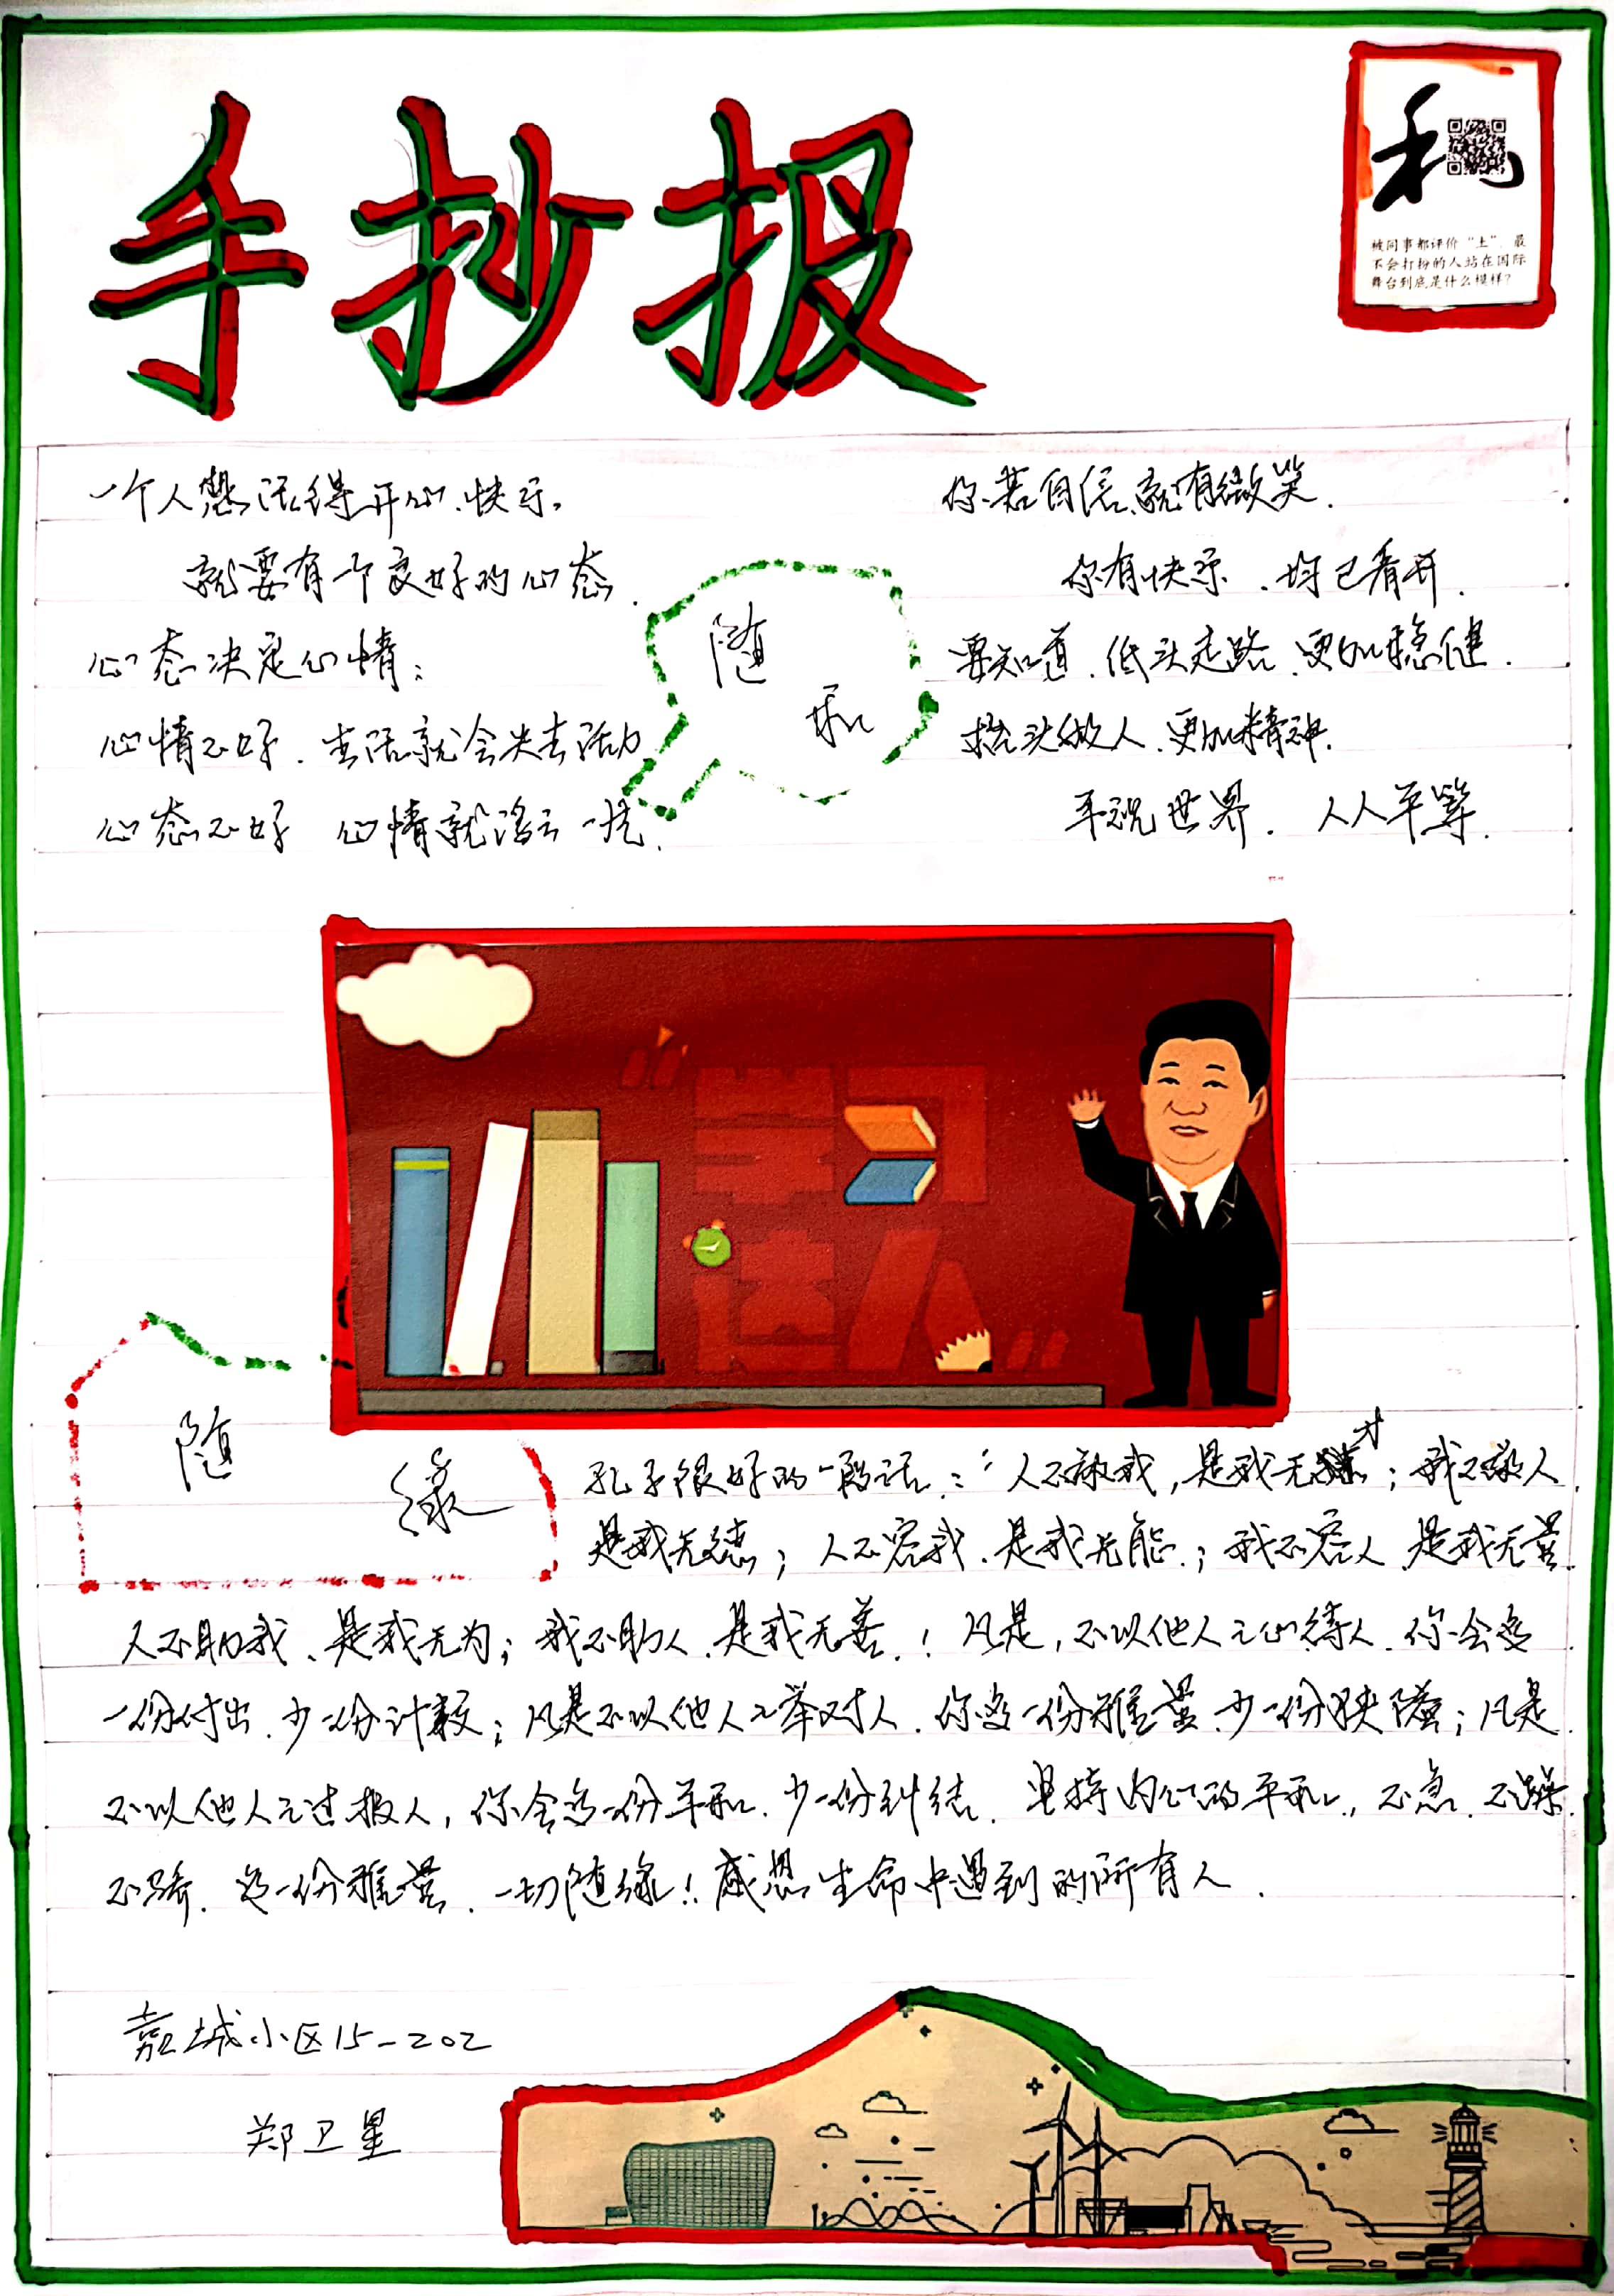 手抄报
和
被同事都评价“土”、最
不会打扮的人站在国际
舞台到底是什么模样?
一个人想活得开心、快乐。
就要有一个良好的心态.
心态决定心情;
心情不好.生活就会失去活力
心态不好 心情就浮云一片.
随
和
你若自信、就有微笑.
你有快乐、均已看开.
要知道.低头走路.更加稳健.
抬头做人.更加精神.
平视世界.人人平等.
“学习
达人”
随
缘
孔子很好的一段话:“人不敬我,是我无才;我不敬人,
是我无德;人不容我、是我无能.;我不容人 是我无量.
人不助我、是我无为;我不助人、是我无善.!凡是,不以他人之心待人.你会多
一份付出、少一份计较;凡是不以他人之举对人.你多一份雅量、少一份狭隘;凡是
不以他人之过报人,你会多一份平和、少一份纠结.坚持内心的平和.,不急.不躁.
不骄.多一份雅量、一切随缘!感恩生命中遇到的所有人.
嘉城小区15-202
郑卫星